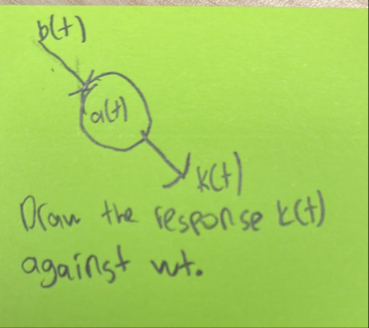 b(t)
a(t)
k(t)
Draw the response k(t)
against wt.